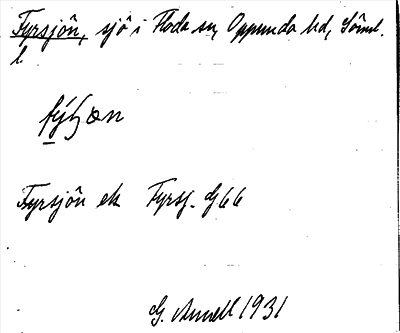 Fyrsjön, sjö i Floda sn, Oppunda hd, Söml.
l.
Fyrsjön ek Fyrsj. G66
G. Annell 1931